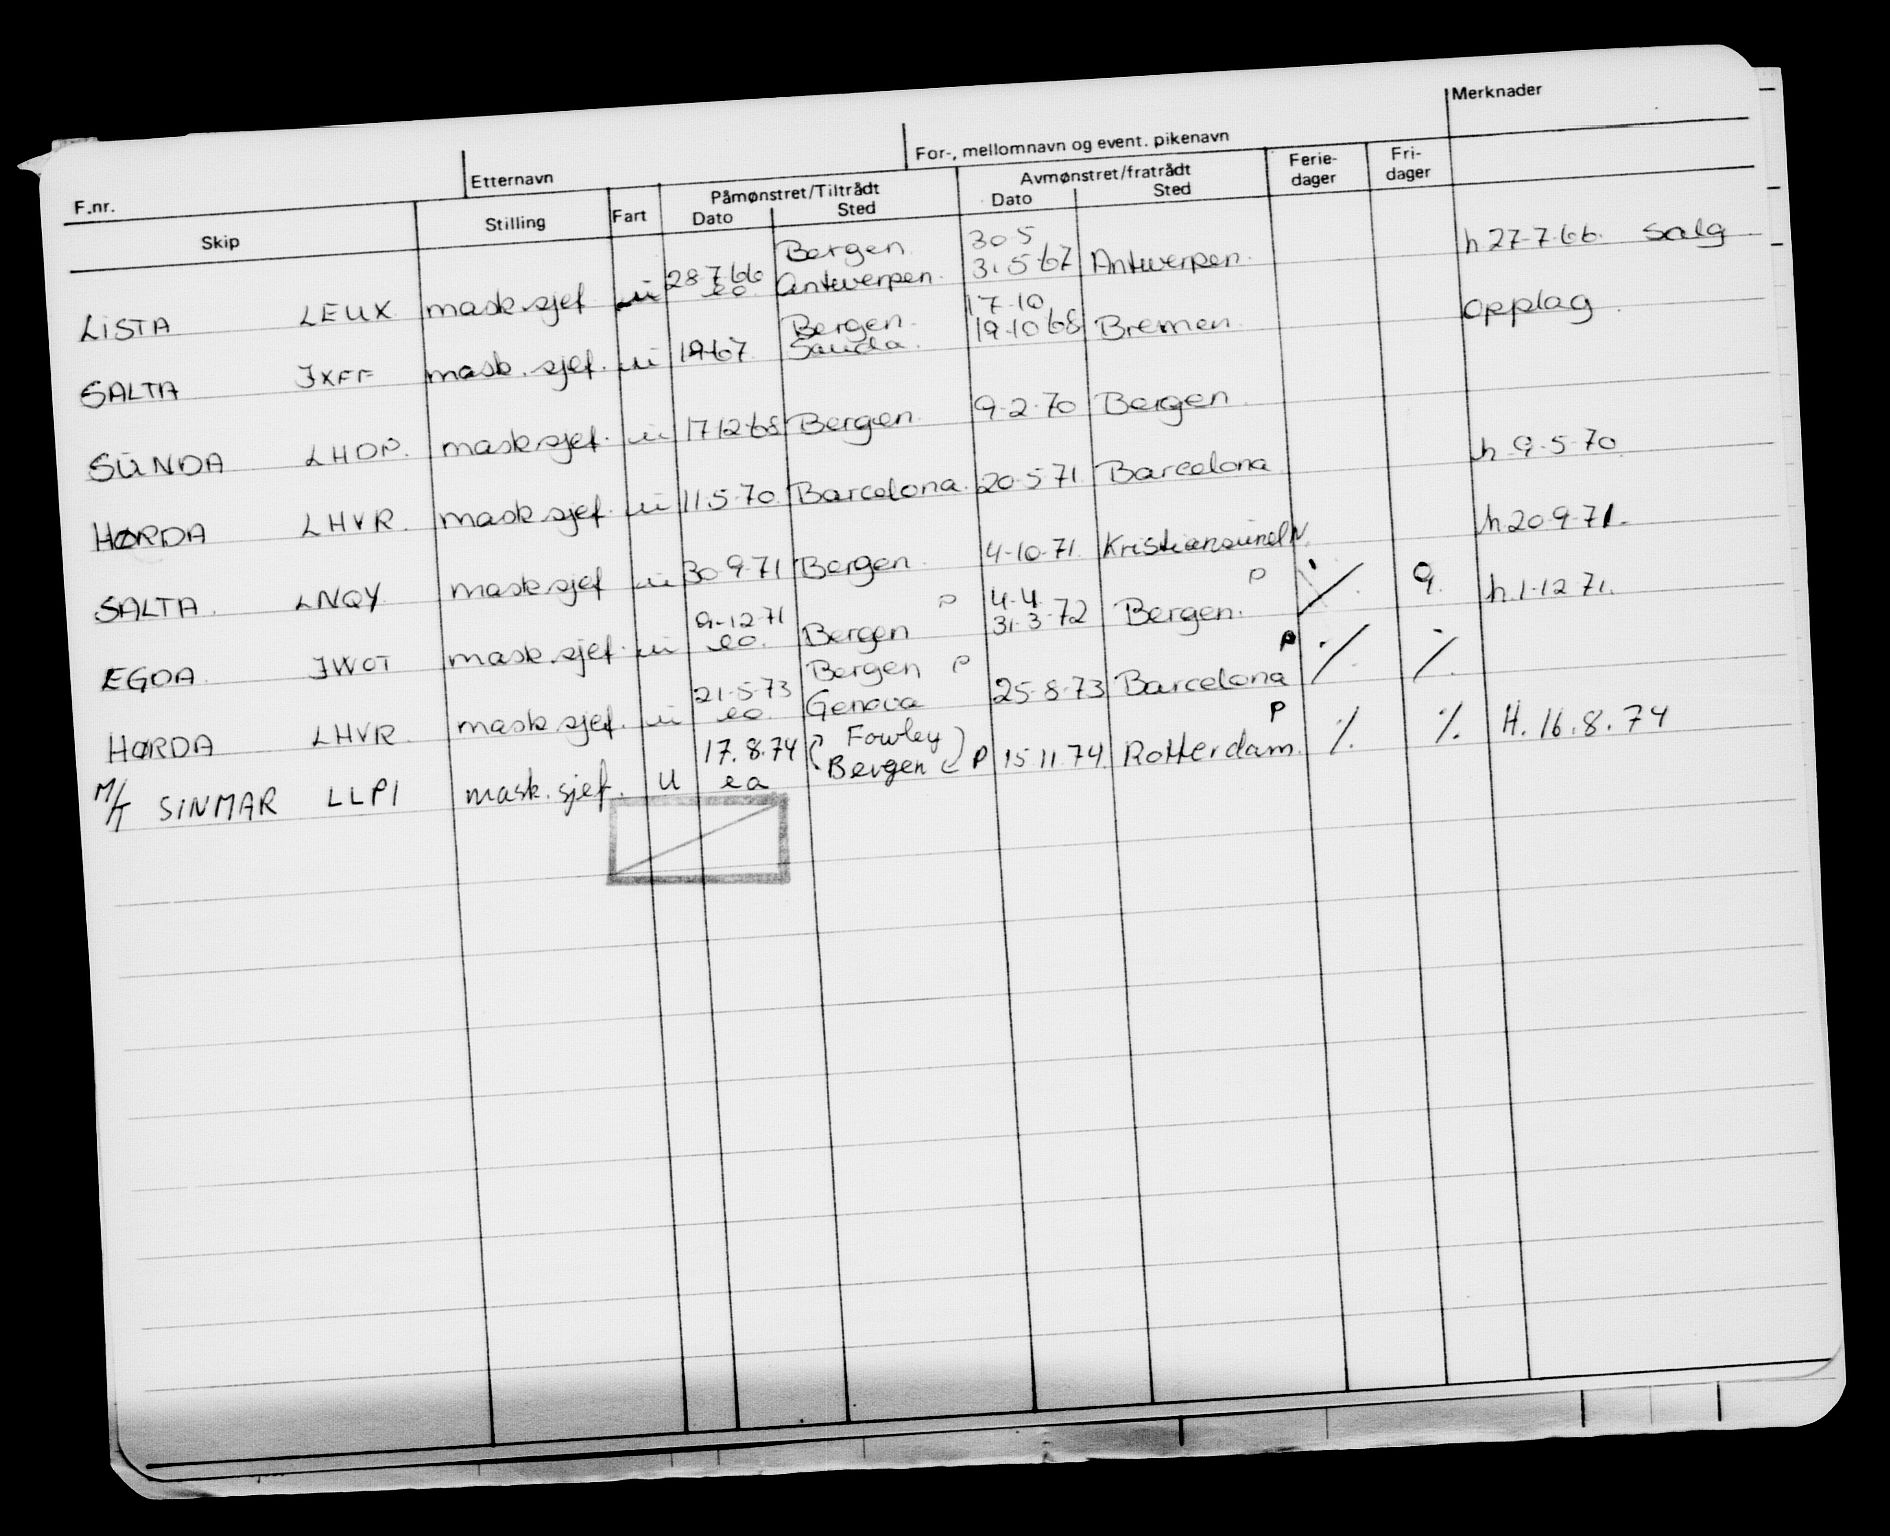 F.nr. Etternavn For-, mellomnavn og event. pikenavn Merknader
Skip Stilling Fart Påmønstret/Tiltrådt Avmønstret/fratrådt Ferie-dager Fri-dager
Dato Sted Dato Sted
Bergen. 30.5
LISTA LEUX mask.sjef u 28.7.66 eo. Antwerpen. 31.5.67 Antwerpen. h 27-7.66. Salg
Bergen. 17-10
SALTA JXFF mask. sjef. u 1.9.67 Sauda. 19.10.68 Bremen. Opplag
SUNDA LHOP. mask.sjef. u 17.12.68 Bergen. 9.2.70 Bergen.
HØRDA LHVR. mask sjef. u 11.5.70. Barcelona. 20.5.71. Barcelona h 9.5.70
SALTA. LNQY mask sjef u 30.9.71 Bergen. 4.10.71. Kristiansund N. h.20.9.71.
9-12-71 P 4.4 P
EGDA. JWOT mask.sjef. u eo. Bergen 31.3.72 Bergen. ⁒ 9. h.1.12.71.
21.5.73 Bergen P P
HØRDA LHVR. mask sjef. u eo. Genova 25.8.73 Barcelona ⁒ ⁒
17.8.74 Fowley P
M/T SINMAR LLPI mask. sjef. u ea Bergen P 15.11.74. Rotterdam. ⁒ ⁒ H. 16.8.74